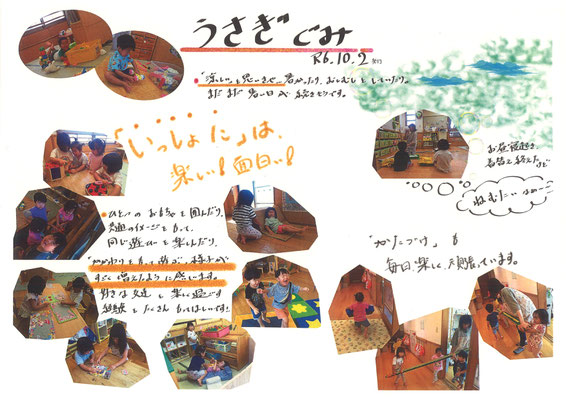 うさぎぐみ
R6.10.2 発行
"涼しい"と思いきや…暑かったり、むしむしとしていたり。
まだまだ暑い日が続きそうです。
「いっしょに」は、
楽しい！面白い！
お昼寝起き、
着替え終えたけど
ねむたいよぉ〜
・ひとつのおもちゃを囲んだり、
共通のイメージをもって、
同じ遊びを楽しんだり、
"かかわり"をもって遊ぶ様子が
すごく増えたように感じます。
好きな友達と楽しく過ごす
経験をたくさんもってほしいです！
"かたづけ"も
毎日楽しく、頑張っています。